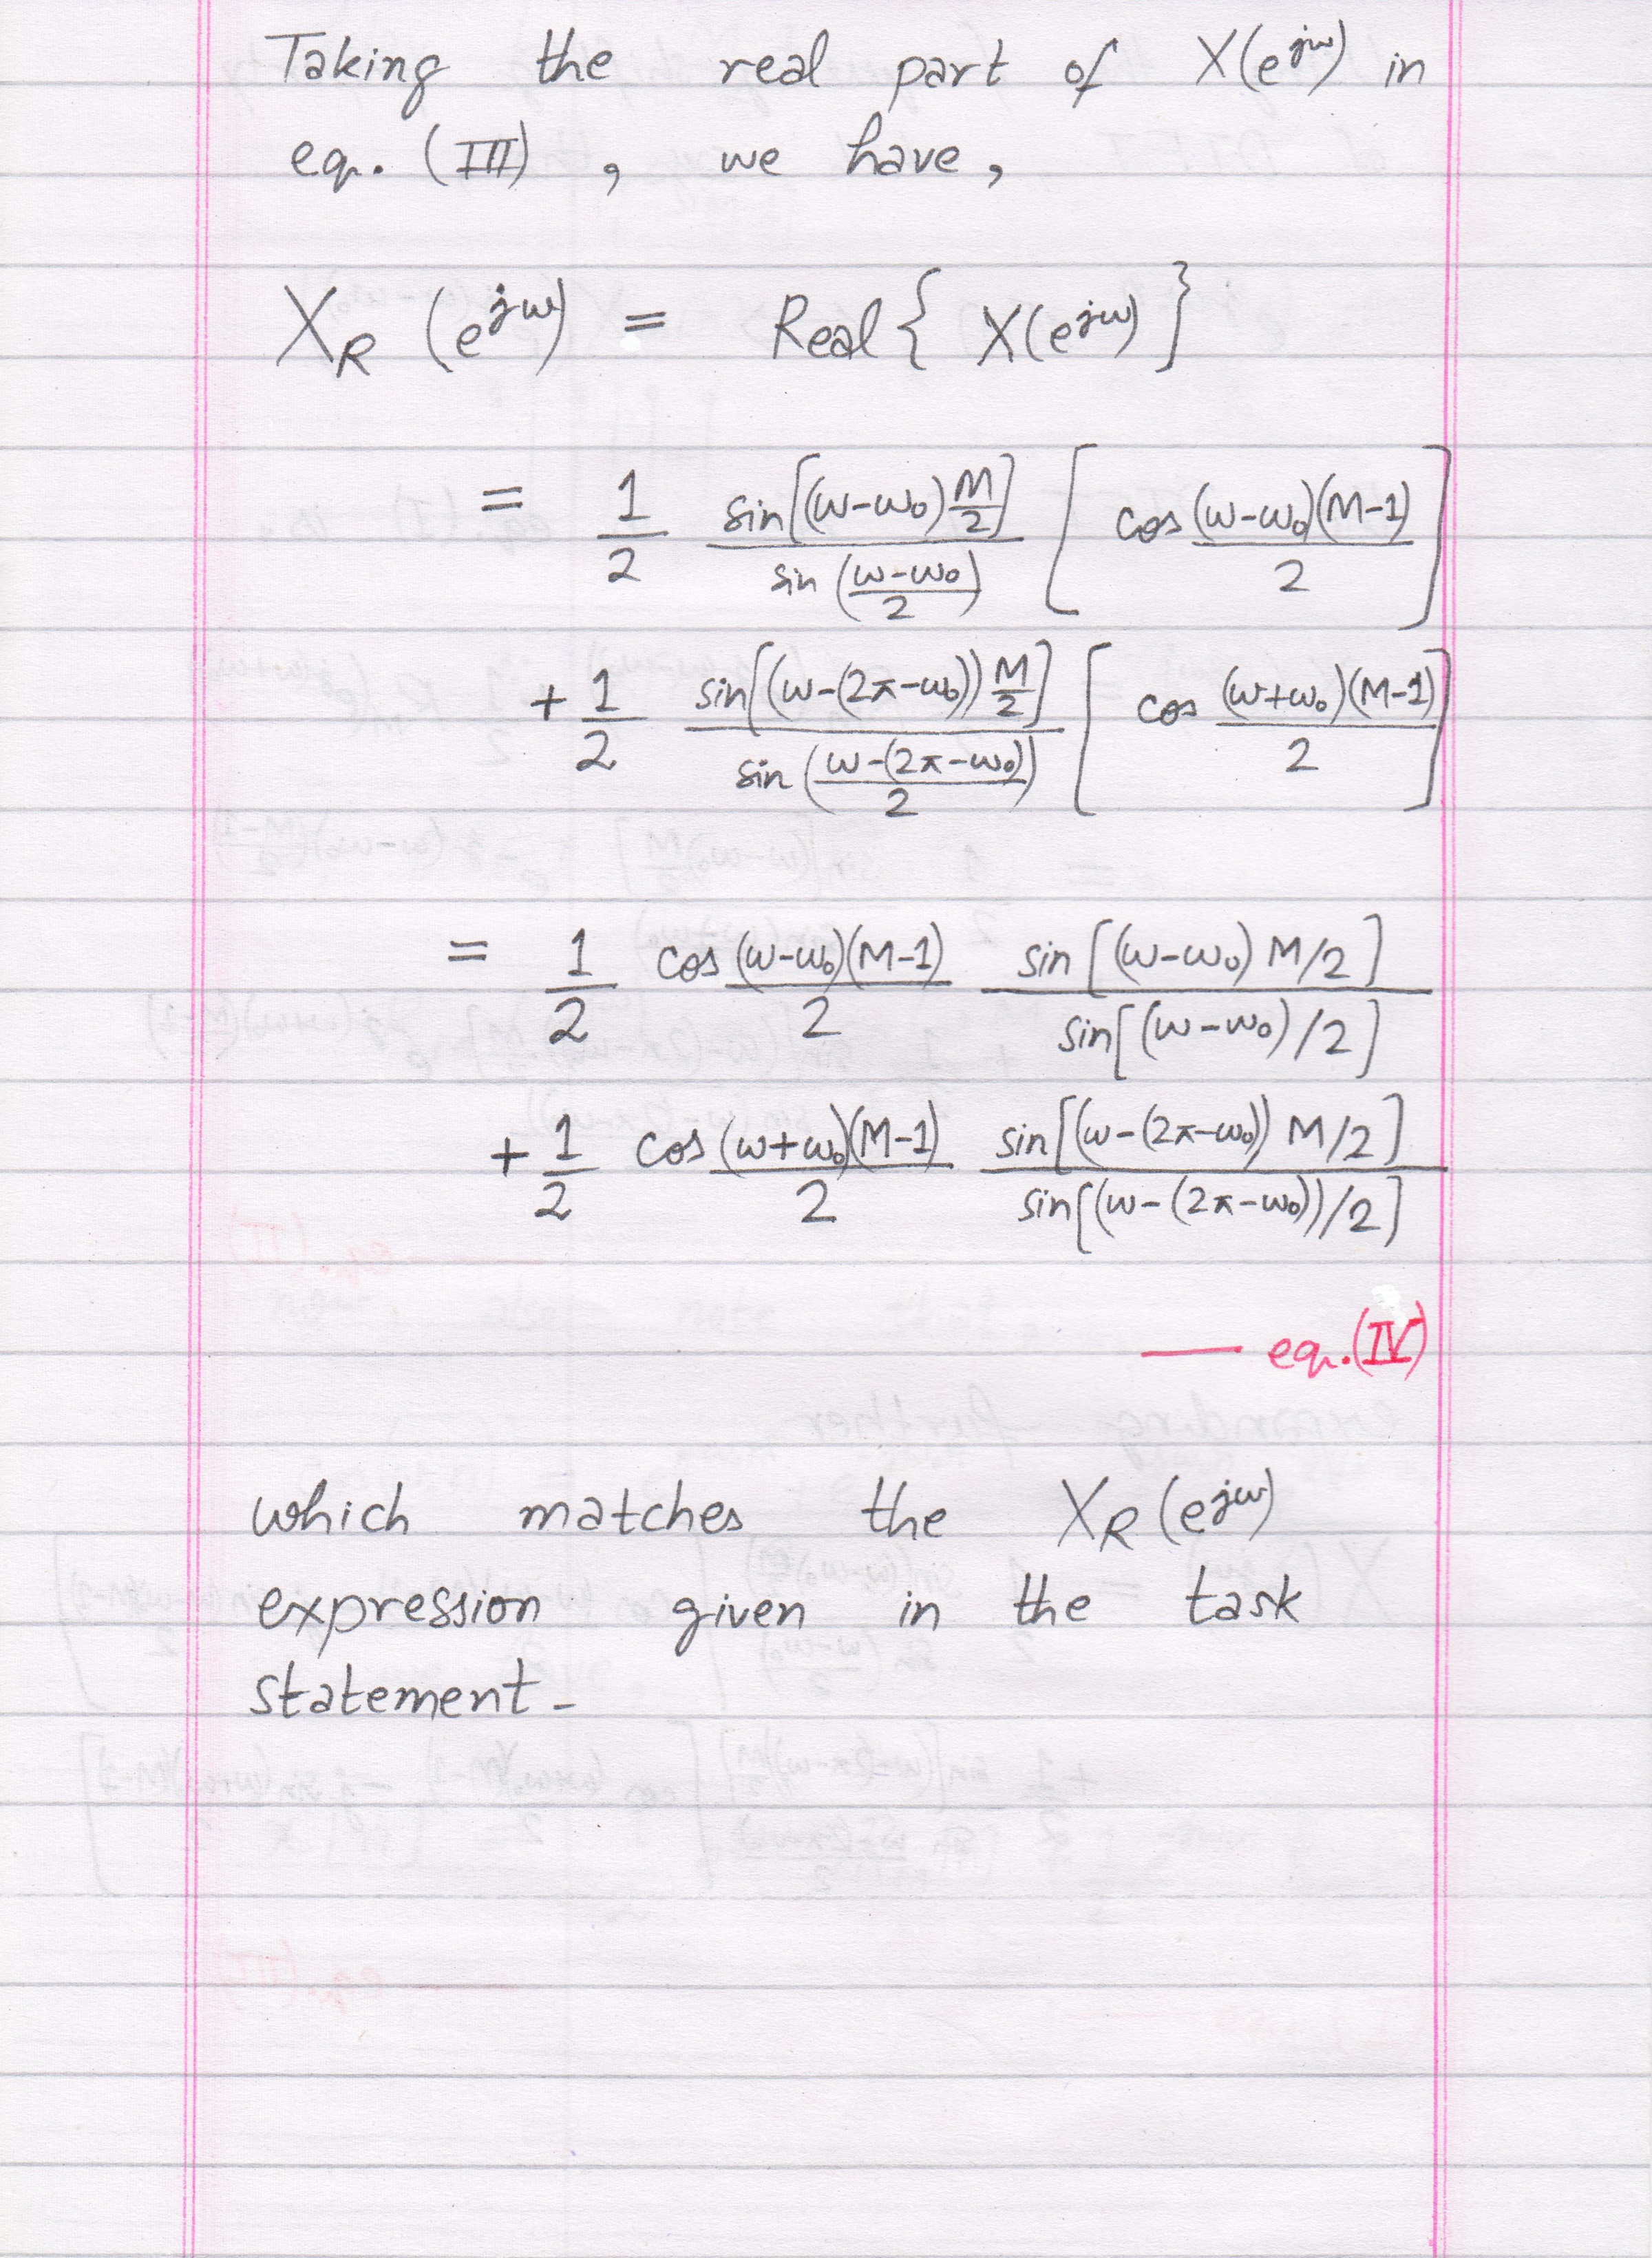 Taking the real part of X(e^{jω}) in
eq. (III), we have,
X_R (e^{jω}) = Real{ X(e^{jω}) }
= 1/2 sin[(ω-ω₀)M/2] / sin((ω-ω₀)/2) [ cos (ω-ω₀)(M-1)/2 ]
+ 1/2 sin[(ω-(2π-ω₀))M/2] / sin((ω-(2π-ω₀))/2) [ cos (ω+ω₀)(M-1)/2 ]
= 1/2 cos (ω-ω₀)(M-1)/2 sin[(ω-ω₀)M/2] / sin[(ω-ω₀)/2]
+ 1/2 cos (ω+ω₀)(M-1)/2 sin[(ω-(2π-ω₀))M/2] / sin[(ω-(2π-ω₀))/2]
— eq.(IV)
which matches the X_R(e^{jω})
expression given in the task
statement-